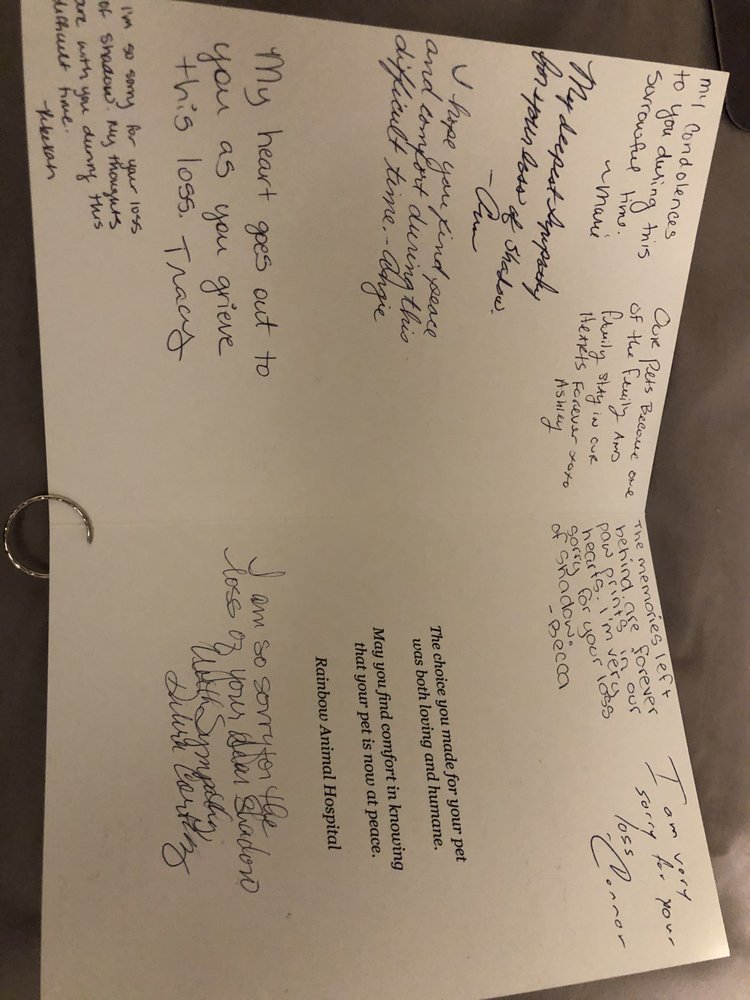 My condolences
to you during this
sorrowful time.
~Marie
My deepest sympathy
for your loss of Shadow.
- Ann
I hope you find peace
and comfort during this
difficult time. - Angie
My heart goes out to
you as you grieve
this loss. Tracy
I'm so sorry for your loss
of Shadow. My thoughts
are with you during this
difficult time.
-Rebekah
Our Pets Become one
of the Family AND
Family stay in our
Hearts Forever xoxo
Ashley
The memories left
behind are forever
paw prints in our
hearts. I'm very
sorry for your loss
of Shadow.
-Becca
I am very
sorry for your
loss
-Connor
The choice you made for your pet
was both loving and humane.
May you find comfort in knowing
that your pet is now at peace.
Rainbow Animal Hospital
I am so sorry for the
loss of your dear Shadow
With Sympathy,